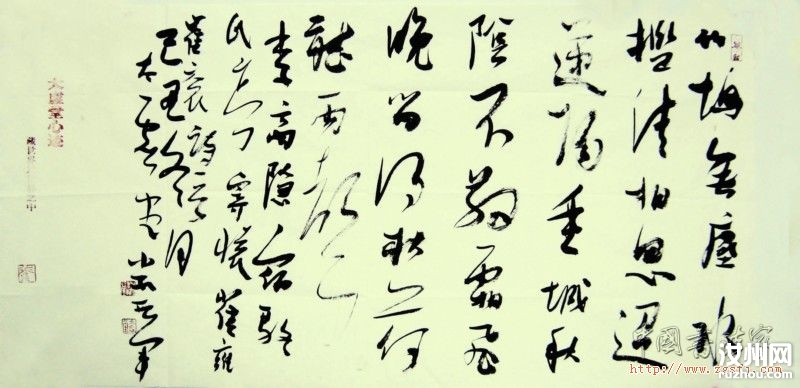 竹塢無塵水
檻清相思迢
遞隔重城秋
陰不散霜飛
晚留得枯荷
聽雨聲
李商隱宿駱
氏亭寄懷崔雍
崔袞詩一首
己丑冬月
http://www.zgsfj.com
汝州网
ruzhou.com